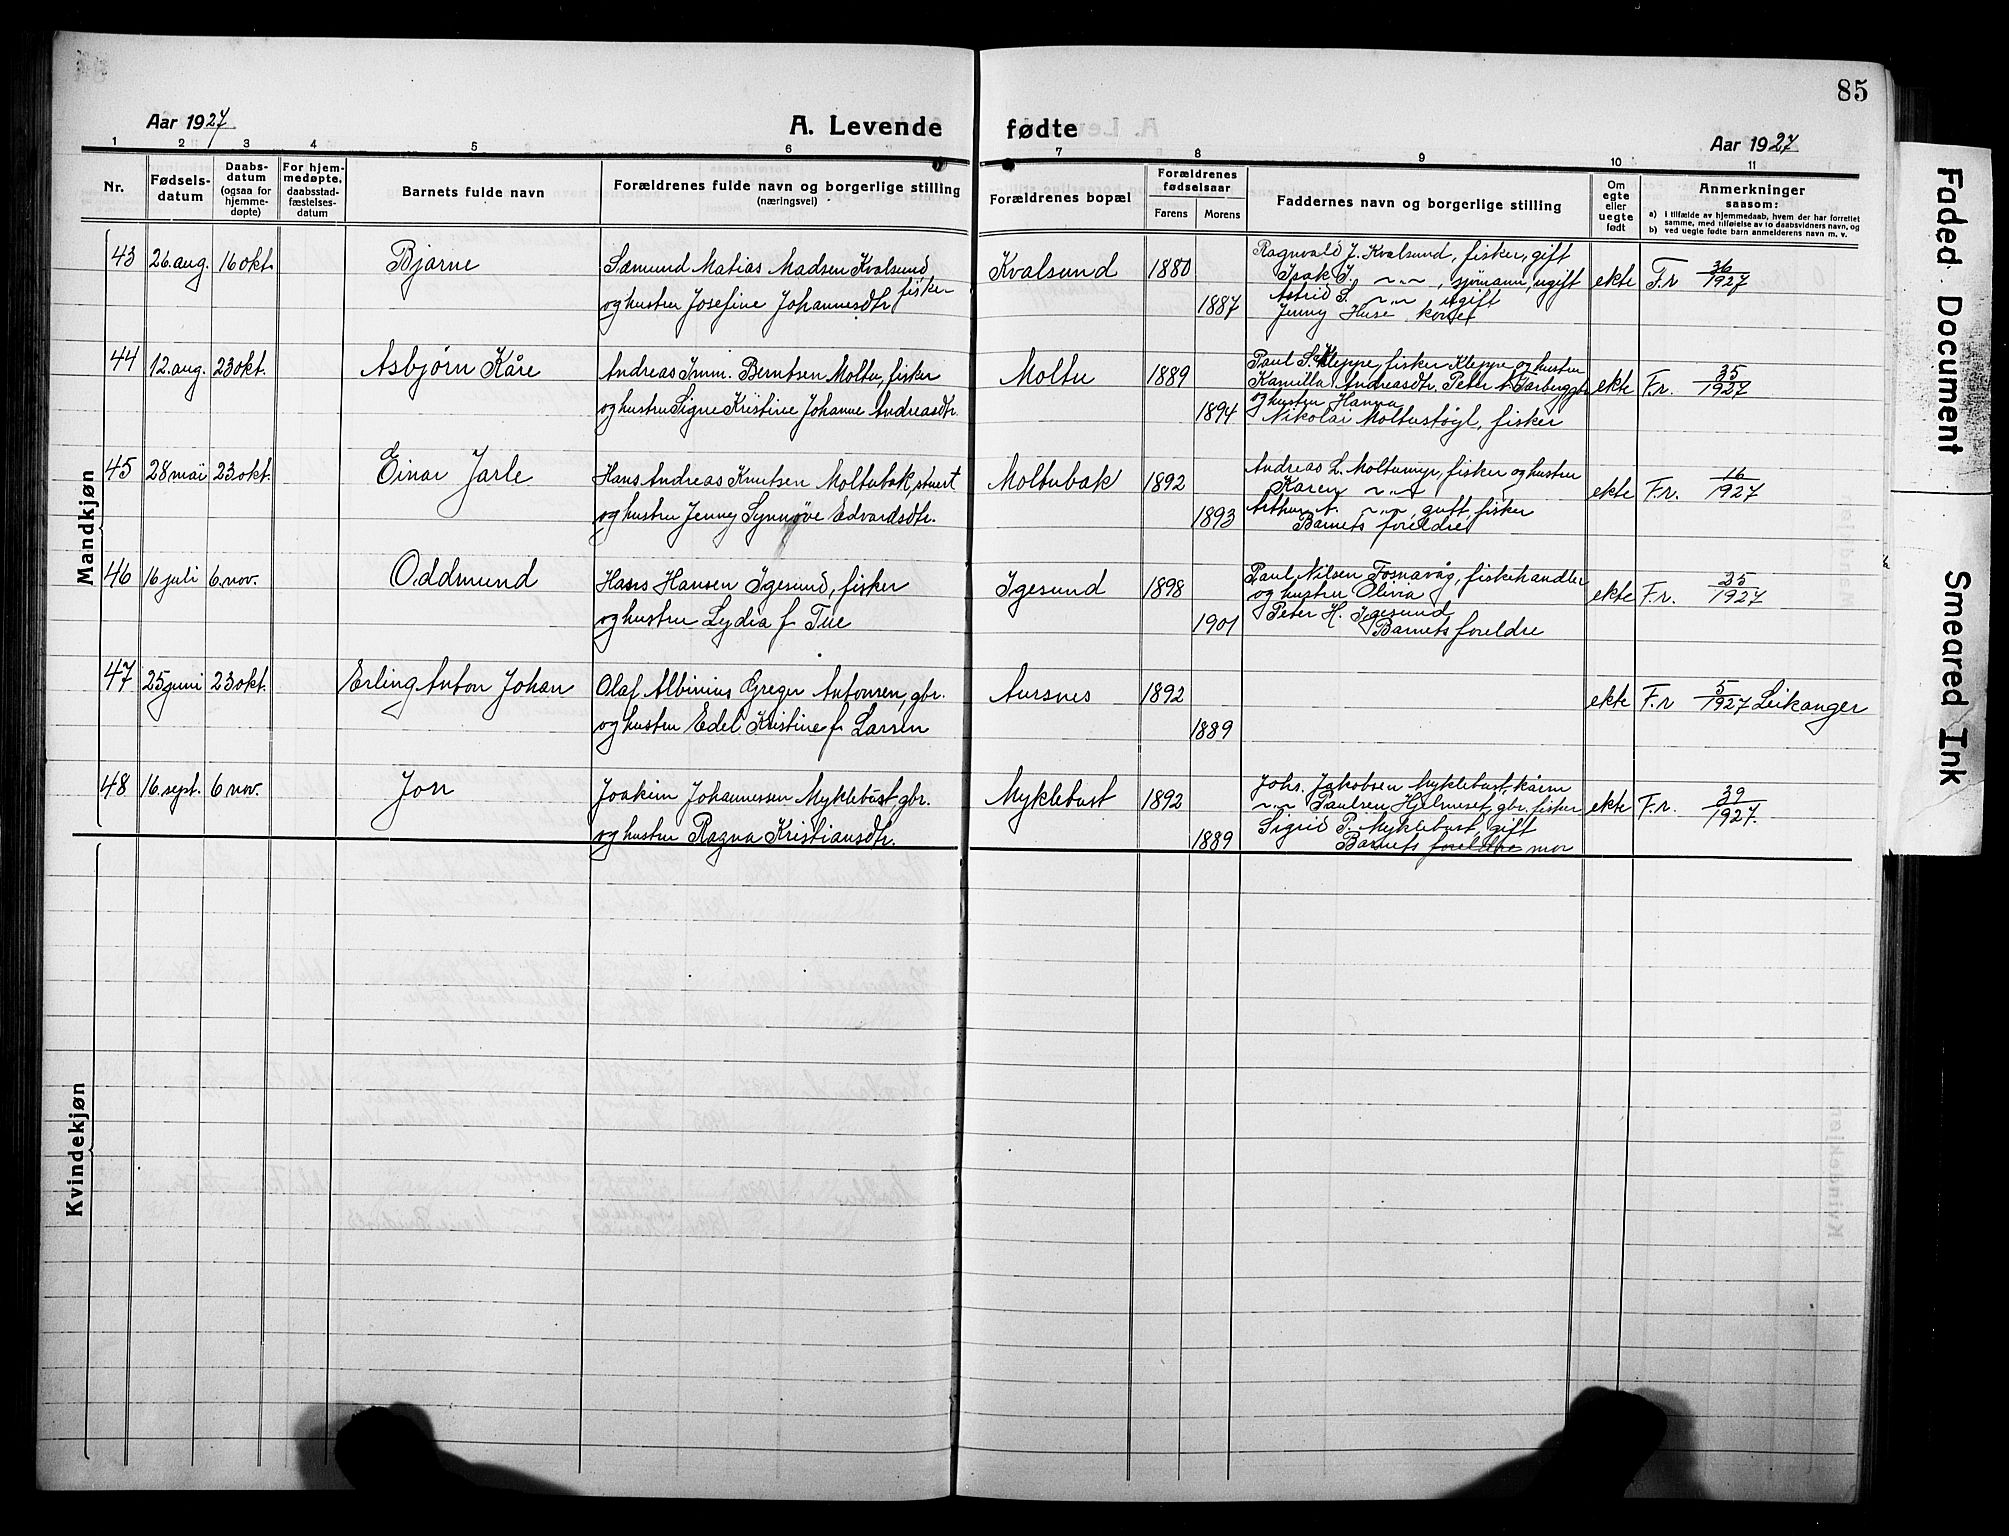 85
Aar 1927 A. Levende fødte Aar 1927
1 2 3 4 5 6 7 8 9 10 11
Nr.
Fødsels-
datum
Daabs-
datum
(ogsaa for
hjemme-
døpte)
For hjem-
medøpte,
daabsstad-
fæstelses-
datum
Barnets fulde navn
Forældrenes fulde navn og borgerlige stilling
(næringsvei)
Forældrenes bopæl
Forældrenes
fødselsaar
Farens Morens
Faddernes navn og borgerlige stilling
Om
egte
eller
uegte
født
Anmerkninger
saasom:
a) I tilfælde av hjemmedaab, hvem der har forrettet
samme, med tilføielse av to daabsvidners navn, og
b) ved uegte fødte barn anmelderens navn m. v.
Mandkjøn
43 26 aug. 16 okt. Bjarne
Sæmund Matias Madsen Kvalsund,
fisker
og hustru Josefine Johannesdtr.
Kvalsund 1880
1887
Ragnvald J. Kvalsund, fisker, gift
Isak J. ~"~, sjømann, ugift
Astrid S. ~"~ ugift
Jenny Huse, kone
ekte F.r 36/1927
44 12. aug. 23 okt. Asbjørn Kåre
Andreas Imm. Berntsen Moltu, fisker
og hustru Signe Kristine Johanne Andreasdtr.
Moltu 1889
1894
Paul S. Kleppe, fisker Kleppe og hustru
Kamilla Andreasdtr, Peter
og hustru Hanna
Nikolai Moltustøyl, fisker
ekte F.r. 35/1927
45 28 mai 23 okt. Einar Jarle
Hans Andreas Knutsen Moltubak, stuert
og hustru Jenny Synnøve Edvardsdtr.
Moltubak 1892
1893
Andreas L. Moltumyr, fisker og hustru
Karen ~"~
Arthur A. ~"~, gift, fisker
Barnets foreldre
ekte F.r. 16/1927
46 16 juli 6. nov. Oddmund
Hans Hansen Igesund, fisker
og hustru Lydia f. Tue
Igesund 1898
1901
Paul Nilsen Fosnavåg, fiskehandler
og hustru Olivia
Peter H. Igesund
Barnets foreldre
ekte F.r. 25/1927
47 25 juni 23 okt. Erling Anton Johan
Olaf Albinius Greger Antonsen, gbr.
og hustru Edel Kristine f. Larsen
Aursnes 1892
1889
ekte F.r 5/1927 Leikanger
48 16. sept. 6 nov. Jon
Joakim Johannessen Myklebust, gbr.
og hustru Ragna Kristiansdtr.
Myklebust 1892
1889
Johs. Jakobsen Myklebust, kårm
~"~ Paulsen Hjelmeset, gbr. fisker
Sigrid P. Myklebust, gift
Barnets foreldre mor
ekte F.r. 39/1927.
Kvindekjøn
Faded Document
Smeared Ink